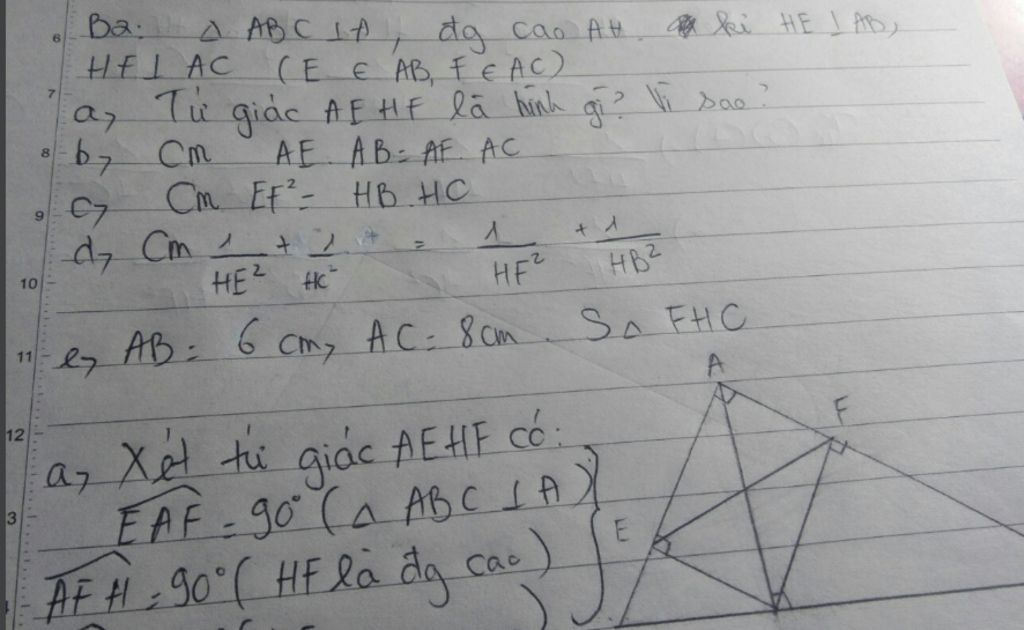 6 B2: △ ABC ⊥ A, đg cao AH. kẻ HE ⊥ AB,
HF ⊥ AC (E ∈ AB, F ∈ AC)
7 a, Tứ giác AEHF là hình gì? Vì sao?
8 b, Cm AE. AB = AF. AC
9 c, Cm EF² = HB. HC
10 d, Cm 1/HE² + 1/HC² = 1/HF² + 1/HB²
11 e, AB = 6 cm, AC = 8cm. S△ FHC
A
F
E
12 a, Xét tứ giác AEHF có:
3 EAF = 90° (△ ABC ⊥ A)
AFH = 90° (HF là đg cao)